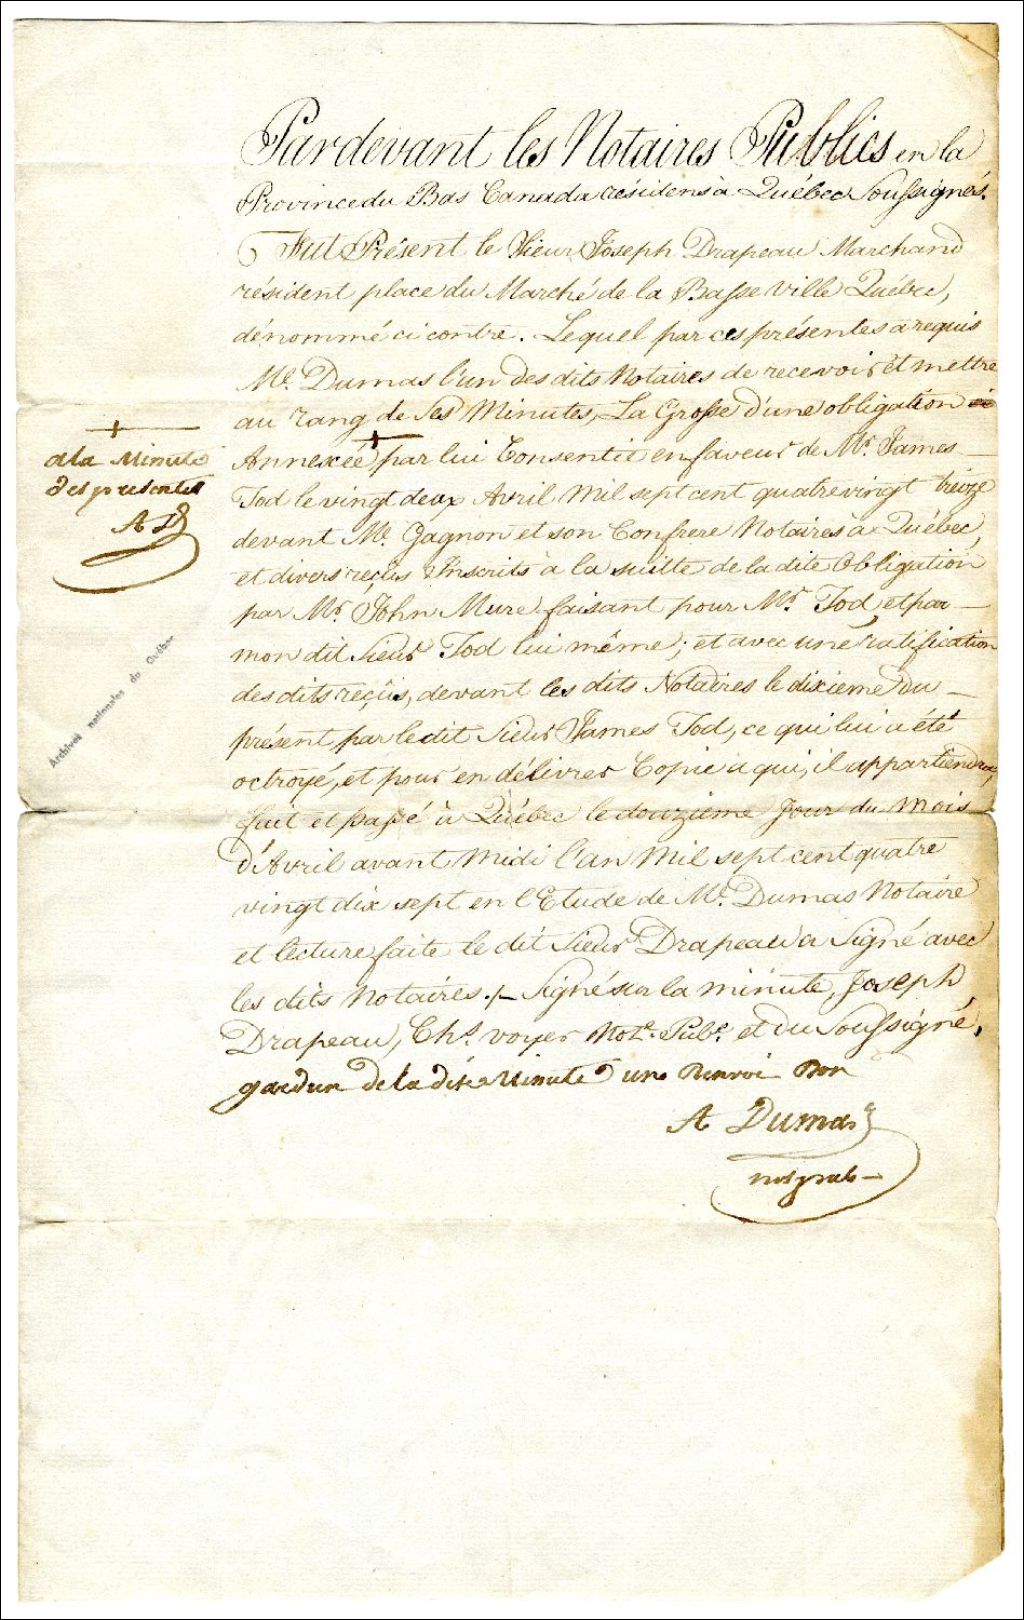 Pardevant les Notaires Publics en la
Province du Bas Canada résidens à Québec Soussignés.
Fut Présent le Sieur Joseph Drapeau Marchand
résident place du Marché de la Basse ville Québec,
dénommé ci contre. Lequel par ces présentes a requis
Me. Dumas l'un des dits Notaires de recevoir et mettre
au rang de Ses Minutes, La Grosse d'une obligation
+
a la Minute
des presentes
A D
Annexée + par lui Consentie en faveur de Mr. James
Tod le vingt deux Avril Mil sept cent quatre vingt treize
devant Me. Gagnon et son Confrere Notaires à Québec,
et divers reçûs Inscrits à la suitte de la dite Obligation
par Mr. John Mure faisant pour Mr. Tod, et par
mon dit Sieur Tod lui même; et avec une ratification
des dits reçûs, devant les dits Notaires le dixieme du
présent par le dit Sieur James Tod, ce qui lui a été
octroyé, et pour en délivrer Copie a qui, il appartiendra,
fait et passé à Québec le douzieme Jour du Mois
d'Avril avant Midi l'an Mil sept cent quatre
vingt dix sept en l'Etude de Me. Dumas Notaire
et lecture faite le dit Sieur Drapeau a Signé avec
les dits Notaires ./. Signé sur la minute, Joseph
Drapeau, Chs. voyer Note. Pube. et du Soussigné,
de la dite Minute un Renvoi Bon
A Dumas
Archives nationales du Québec